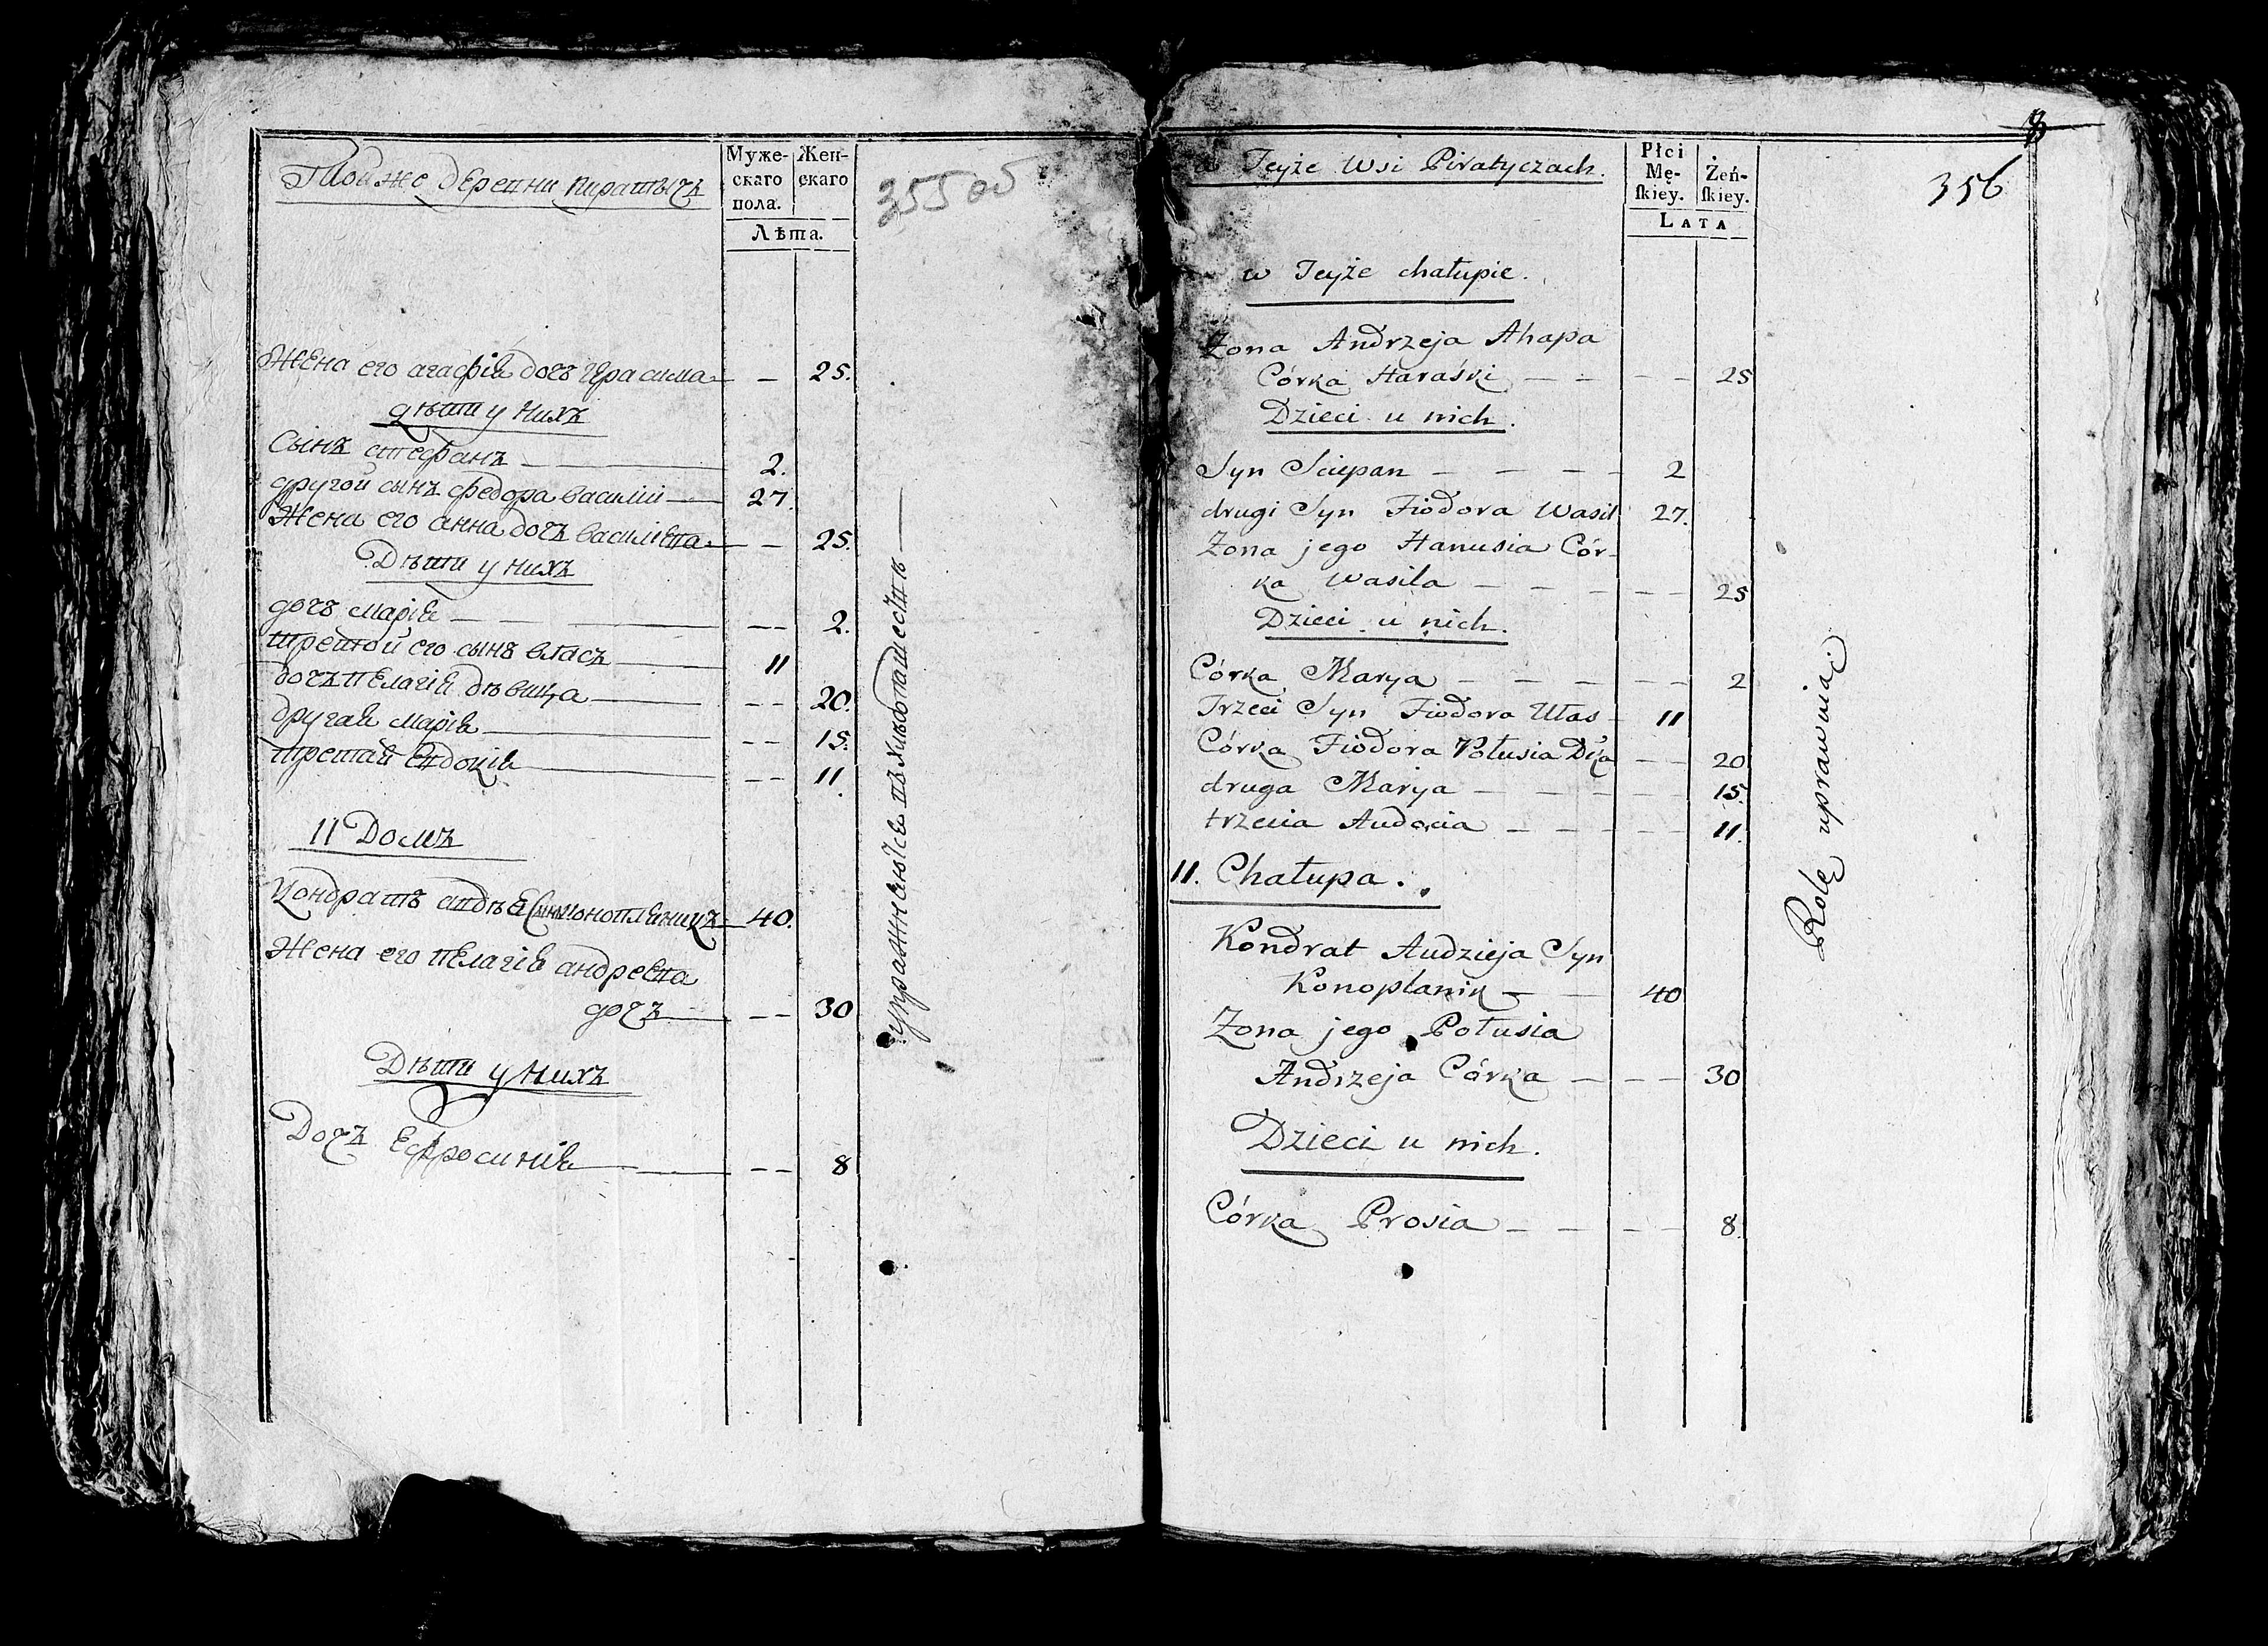 Той же деревни пиратычъ
Муже-
скаго
пола.
Жен-
скаго
Лѣта.
355 об
Жена его агафія дочь Герасима — 25.
дѣти у нихъ
Сынъ стефанъ — 2.
другой сынъ федора василий — 27.
Жена его анна дочь васильева — 25.
Дѣти у нихъ
дочь марія — 2.
третой его сынъ власъ — 11
дочь пелагія дѣвица — 20.
другая марія — 15.
третая Евдокія — 11.
11 Домъ
Кондратъ авдѣя Сынъ конопляникъ — 40.
Жена его пелагія андреева
дочь — 30
Дѣти у нихъ
Дочь Ефросинія — 8
упражняются въ хлебопашестве —
w Teyże Wsi Piratyczach.
Płci
Mę-
ſkiey.
Żeń-
ſkiey.
LATA
8
356
w Teyże chałupie.
Zona Andrzeja Ahapa
Córka Haraśki — 25
Dzieci u nich.
Syn Sciepan — 2
drugi Syn Fiodora Wasil 27.
Zona jego Hanusia Cór-
ka Wasila — 25
Dzieci u nich.
Córka Marya — 2
Trzeci Syn Fiodora Ułas — 11
Córka Fiodora Połusia Dka — 20
druga Marya — 15.
trzecia Audocia — 11.
11. Chałupa.
Kondrat Audzieja Syn
Konoplanik — 40
Zona jego Połusia
Andrzeja Córka — 30
Dzieci u nich.
Córka Prosia — 8.
Rolę uprawnia